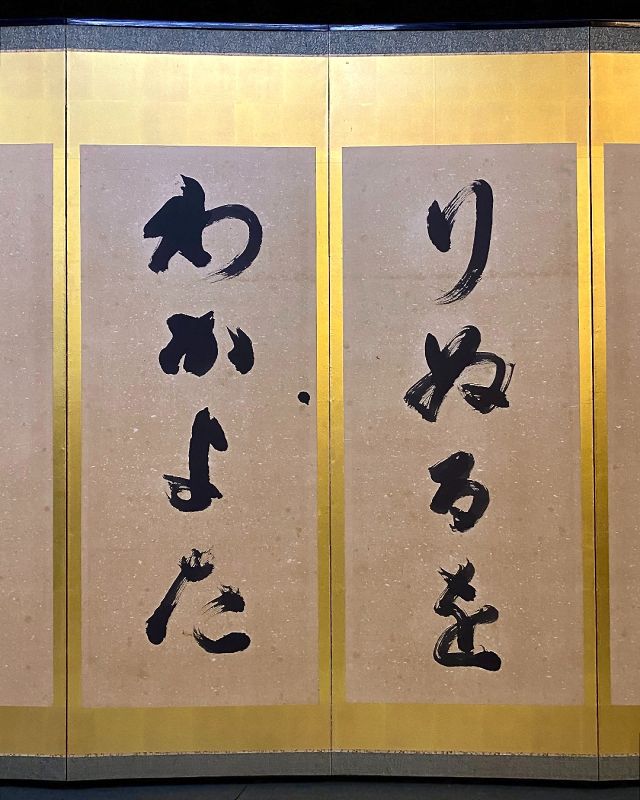 りぬるを
わかよた